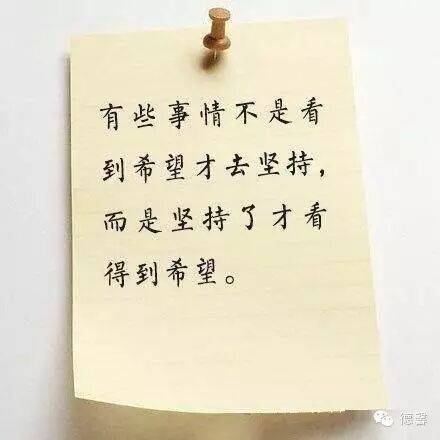 有些事情不是看
到希望才去坚持，
而是坚持了才看
得到希望。
德馨